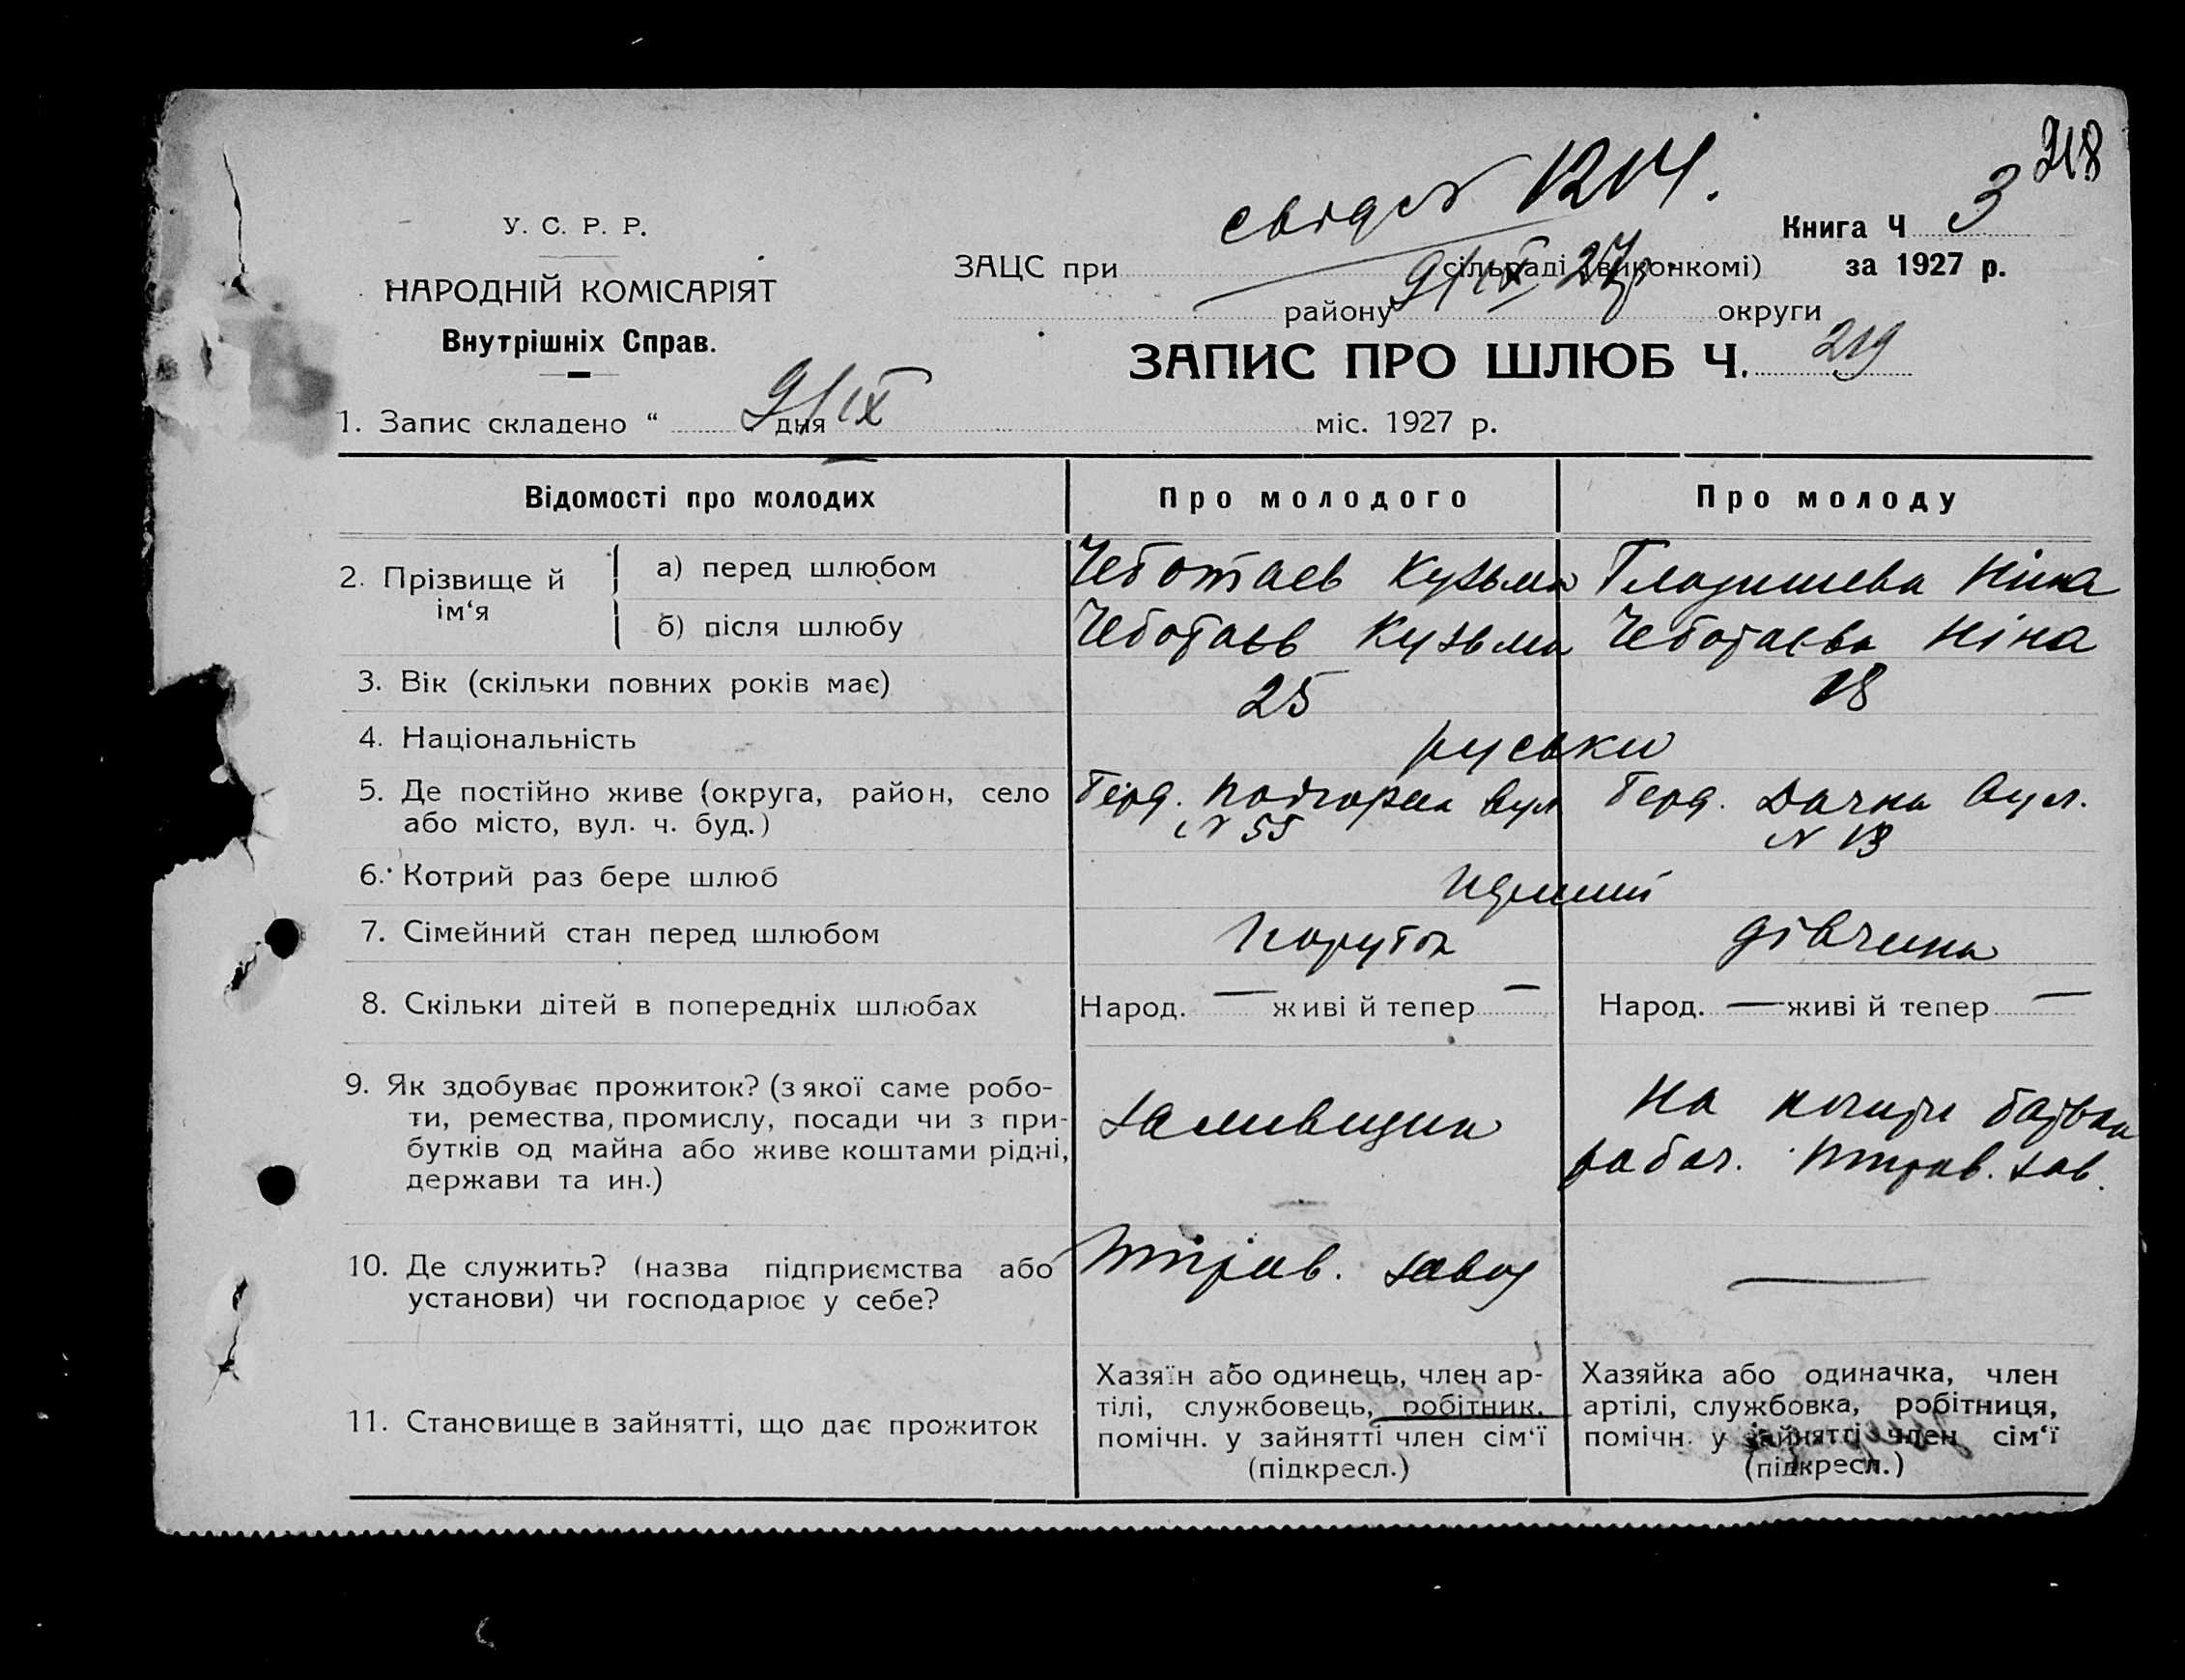 218
свідоцт 1214.
Книга Ч 3
У. С. Р. Р.
ЗАЦС при сільраді (виконкомі) за 1927 р.
9/IX 27р.
НАРОДНІЙ КОМІСАРІЯТ
району округи
Внутрішніх Справ.
ЗАПИС ПРО ШЛЮБ Ч. 219
1. Запис складено “ 9/IX дня міс. 1927 р.
Відомості про молодих Про молодого Про молоду
2. Прізвище й ім‘я
а) перед шлюбом Чеботаев Кузьма Гладишева Ніна
б) після шлюбу Чеботаєв Кузьма Чеботаєва Ніна
3. Вік (скільки повних років має) 25 18
4. Національність руськи
5. Де постійно живе (округа, район, село Берд. Подгорна вул Берд. Дачна вул.
або місто, вул. ч. буд.) № 55 № 13
6. Котрий раз бере шлюб перший
7. Сімейний стан перед шлюбом парубок дівчина
8. Скільки дітей в попередніх шлюбах Народ. — живі й тепер — Народ. — живі й тепер —
9. Як здобуває прожиток? (з якої саме робо-
ти, ремества, промислу, посади чи з при-
бутків од майна або живе коштами рідні,
держави та ин.)
заливщик
На кошти батька
рабоч. зав.
10. Де служить? (назва підприємства або
установи) чи господарює у себе?
завод —
11. Становище в зайнятті, що дає прожиток
Хазяїн або одинець, член ар-
тілі, службовець, робітник,
помічн. у зайнятті член сім‘ї
(підкресл.)
Хазяйка або одиначка, член
артілі, службовка, робітниця,
помічн. у зайнятті член сім‘ї
(підкресл.)